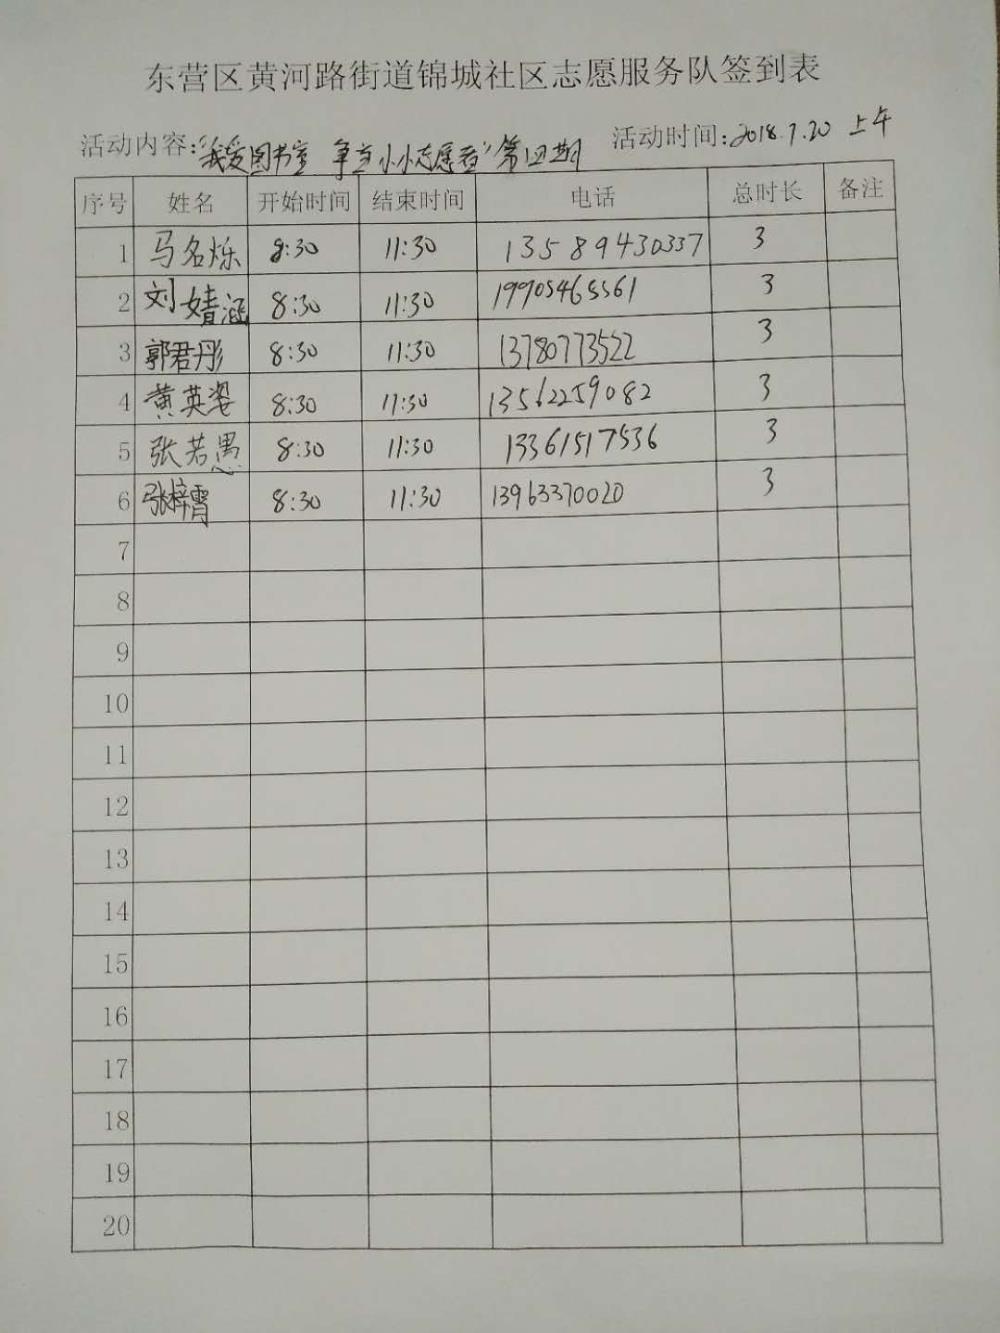 东营区黄河路街道锦城社区志愿服务队签到表
活动内容:"我爱图书室 争当小小志愿者"第四期 活动时间:2018.7.20 上午
序号 姓名 开始时间 结束时间 电话 总时长 备注
1 马名烁 8:30 11:30 13589430337 3
2 刘婧涵 8:30 11:30 19905465561 3
3 郭君彤 8:30 11:30 13780773522 3
4 黄英姿 8:30 11:30 13562259082 3
5 张若愚 8:30 11:30 13361517536 3
6 张梓霄 8:30 11:30 13963370020 3
7
8
9
10
11
12
13
14
15
16
17
18
19
20